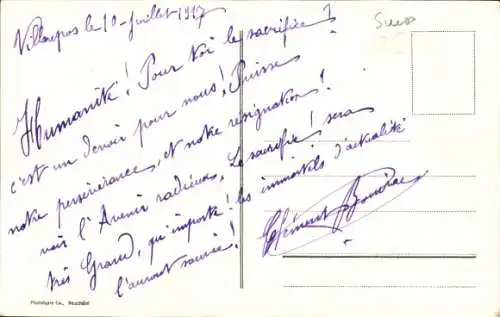 Villarepos le 10 Juillet 1917
Suess
Humanité! Pour toi le sacrifice?
c'est un devoir pour nous! Puisse
notre persévérance, et notre résignation!
voir l'Avenir radieux, Le sacrifice! sera
très Grand, qu'importe! les immortels d'actualité
l'auront sauvée!
Clément
Phototypie Co., Neuchâtel